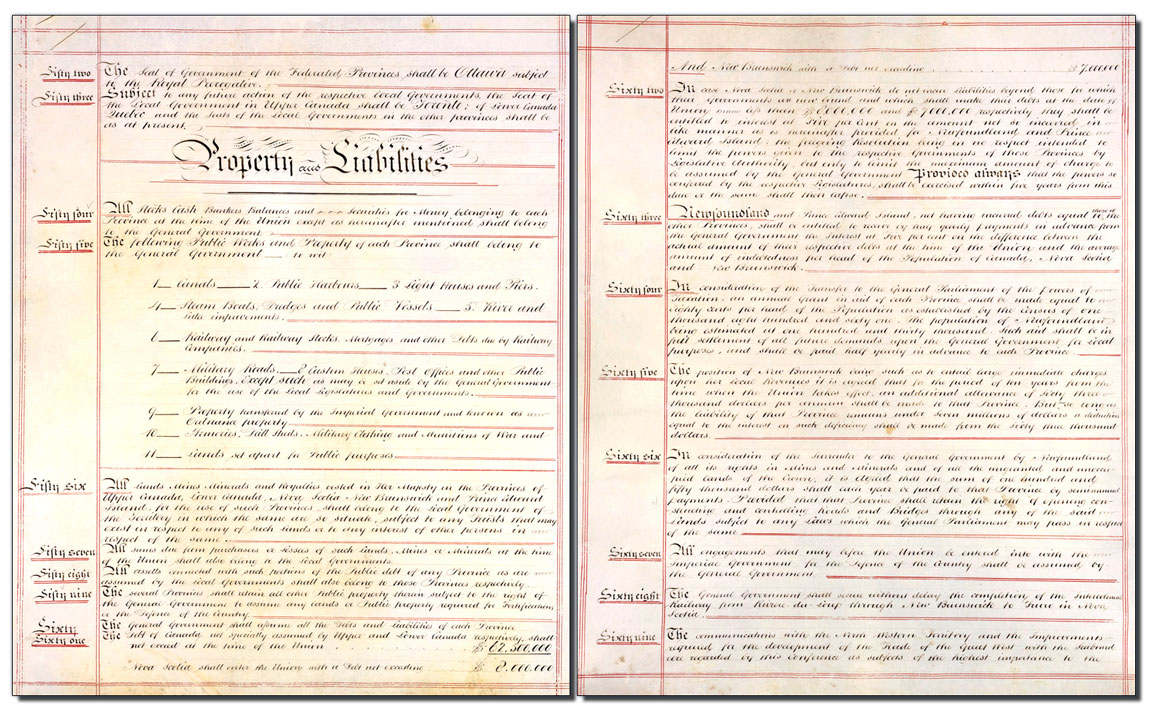 Fifty two The Seat of Government of the Federated Provinces shall be Ottawa subject
to the Royal Prerogative.
Fifty three Subject to any future action of the respective Local Governments the Seat of
the Local Government in Upper Canada shall be Toronto; of Lower Canada
Quebec and the Seats of the Local Governments in the other provinces shall be
as at present.
Property and Liabilities
Fifty four All Stocks Cash Bankers Balances and Securities for Money belonging to each
Province at the time of the Union except as hereinafter mentioned shall belong
to the General Government.
Fifty five The following Public Works and Property of each Province shall belong to
the General Government to wit
1 Canals 2 Public Harbours 3 Light Houses and Piers.
4 Steam Boats, Dredges and Public Vessels 5 River and
Lake improvements.
6 Railway and Railway Stocks, Mortgages and other Debts due by Railway
Companies.
7 Military Roads 8 Custom Houses, Post Offices and other Public
Buildings, except such as may be set aside by the General Government
for the use of the Local Legislatures and Governments.
9 Property transferred by the Imperial Government and known as
Ordnance property
10 Armories, Drill Sheds, Military Clothing and Munitions of War and
11 Lands set apart for Public purposes
Fifty six All Lands Mines Minerals and Royalties vested in Her Majesty in the Provinces of
Upper Canada, Lower Canada, Nova Scotia New Brunswick and Prince Edward
Island, for the use of such Provinces shall belong to the Local Government of
the Territory in which the same are so situate, subject to any Trusts that may
exist in respect to any of such Lands or to any interest of other persons in
respect of the same.
Fifty seven All sums due from purchasers or lessees of such Lands, Mines or Minerals at the time
of the Union shall also belong to the Local Governments.
Fifty eight All assets connected with such portions of the Public debt of any Province as are
assumed by the Local Governments shall also belong to those Provinces respectively.
Fifty nine The several Provinces shall retain all other Public property therein subject to the right of
the General Government to assume any Lands or Public property required for Fortifications
or the Defence of the Country
Sixty The General Government shall assume all the Debts and Liabilities of each Province
Sixty one The Debt of Canada, not specially assumed by Upper and Lower Canada respectively, shall
not exceed at the time of the Union $62,500,000
Nova Scotia shall enter the Union with a Debt not exceeding $8,000,000
And New Brunswick with a Debt not exceeding $7,000,000
Sixty two In case Nova Scotia or New Brunswick do not incur Liabilities beyond those for which
their Governments are now bound and which shall make their debts at the date of
Union less than $8,000,000 and $7,000,000 respectively they shall be
entitled to interest at Five per Cent on the amount not so incurred, in
like manner as is hereinafter provided for Newfoundland and Prince
Edward Island; the foregoing Resolution being in no respect intended to
limit the powers given to the respective Governments of those Provinces by
Legislative Authority, but only to limit the maximum amount of charge to
be assumed by the General Government Provided always that the powers so
conferred by the respective Legislatures, shall be exercised within five years from this
date or the same shall then lapse.
Sixty three Newfoundland and Prince Edward Island, not having incurred debts equal to those of the
other Provinces, shall be entitled to receive by half yearly payments in advance from
the General Government the Interest at five per cent on the difference between the
actual amount of their respective debts at the time of the Union and the average
amount of indebtedness per head of the Population of Canada, Nova Scotia
and New Brunswick.
Sixty four In consideration of the transfer to the General Parliament of the powers of
Taxation, an annual grant in aid of each Province shall be made equal to
eighty cents per head of the Population as established by the Census of one
thousand eight hundred and sixty one. The population of Newfoundland
being estimated at one hundred and thirty thousand. Such aid shall be in
full settlement of all future demands upon the General Government for local
purposes, and shall be paid half yearly in advance to each Province.
Sixty five The position of New Brunswick being such as to entail large immediate charges
upon her Local Revenues it is agreed that for the period of ten years from the
time when the Union takes effect, an additional allowance of sixty three
thousand dollars per annum shall be made to that Province. But so long as
the liability of that Province remains under seven millions of dollars a deduction
equal to the interest on such deficiency shall be made from the sixty three thousand
dollars.
Sixty six In consideration of the Surrender to the General Government by Newfoundland
of all its rights in Mines and Minerals and of all the ungranted and unoccu-
pied Lands of the Crown, it is agreed that the sum of one hundred and
fifty thousand dollars shall each year be paid to that Province by semiannual
payments. Provided that that Province shall retain the right of opening con-
structing and controlling Roads and Bridges through any of the said
Lands subject to any Laws which the General Parliament may pass in respect
of the same
Sixty seven All engagements that may before the Union be entered into with the
Imperial Government for the Defence of the Country shall be assumed by
the General Government.
Sixty eight The General Government shall secure without delay the completion of the Intercolonial
Railway from Rivière du Loup through New Brunswick to Truro in Nova
Scotia.
Sixty nine The communications with the North Western Territory and the Improvements
required for the development of the Trade of the Great West with the Seaboard
are regarded by this Conference as subjects of the highest importance to the